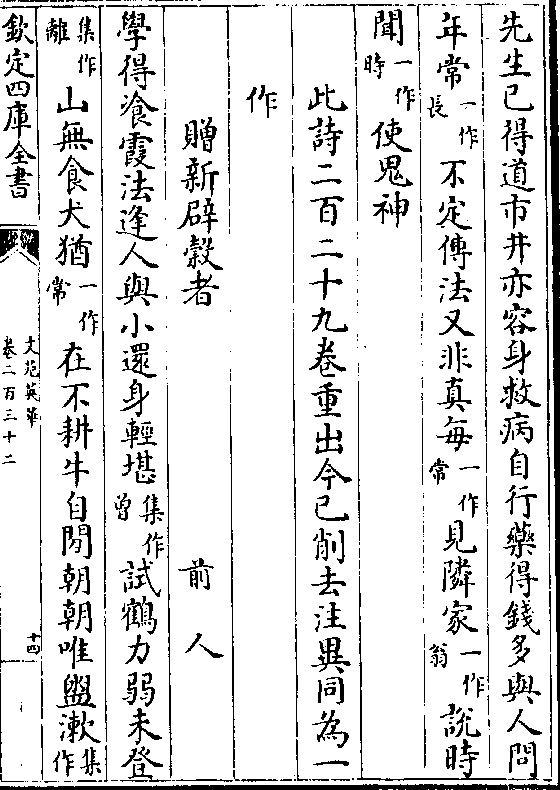 先生已得道市井亦容身救病自行藥得錢多與人問
年常一作長不定傳法又非真每一作常見隣家一作翁說時
聞一作時使鬼神
此詩二百二十九卷重出今已削去注異同為一
作
贈新辟穀者 前人
學得飡霞法逢人與小還身輕堪集作曽試鶴力弱未登
集作離山無食犬猶一作常在不耕牛自閒朝朝唯盥漱集作
欽定四庫全書
文苑英華
卷二百三十二
十四